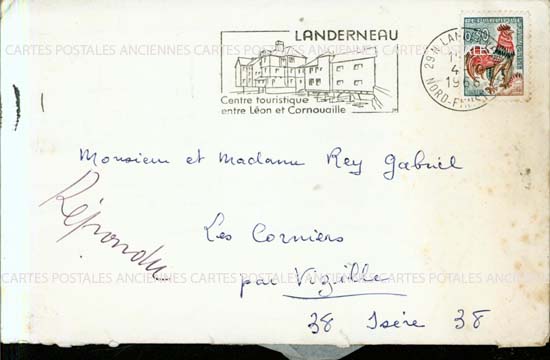 LANDERNEAU
Centre touristique
entre Léon et Cornouaille
29 N. LANDERNEAU
4
196
NORD-FINISTE
CARTES POSTALES ANCIENNES CARTES POSTALES ANCIENNES CARTES POSTALES
Monsieur et Madame Rey Gabriel
Répondu
Les Corniers
CARTES POSTALES ANCIENNES CARTES POSTALES ANCIENNES CARTES POSTALES
par Vizille
38 Isère 38